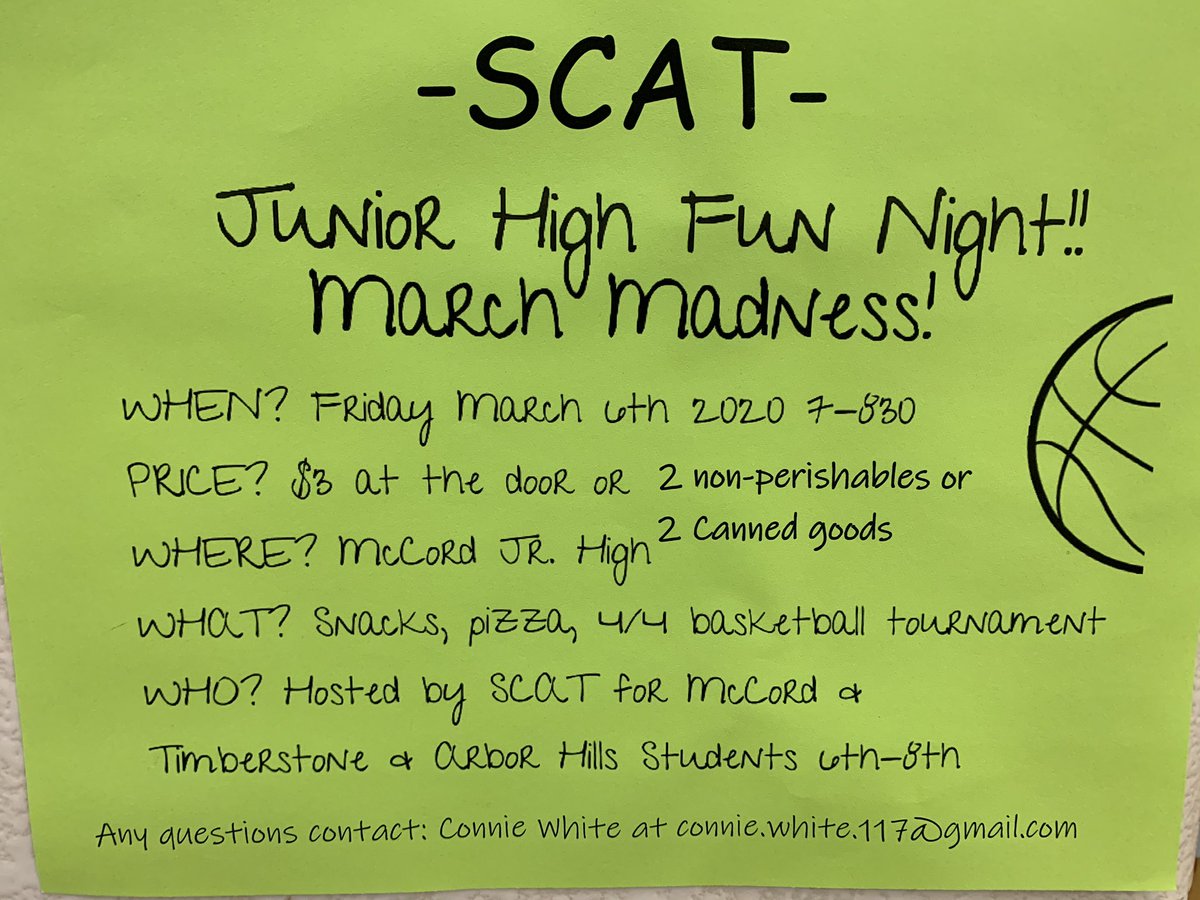 -SCAT-
Junior High Fun Night!!
March Madness!
WHEN? Friday March 6th 2020 7-830
PRICE? $3 at the door or 2 non-perishables or
2 Canned goods
WHERE? McCord Jr. High
WHAT? Snacks, pizza, 4/4 basketball tournament
WHO? Hosted by SCAT for McCord &
Timberstone & Arbor Hills Students 6th-8th
Any questions contact: Connie White at connie.white.117@gmail.com